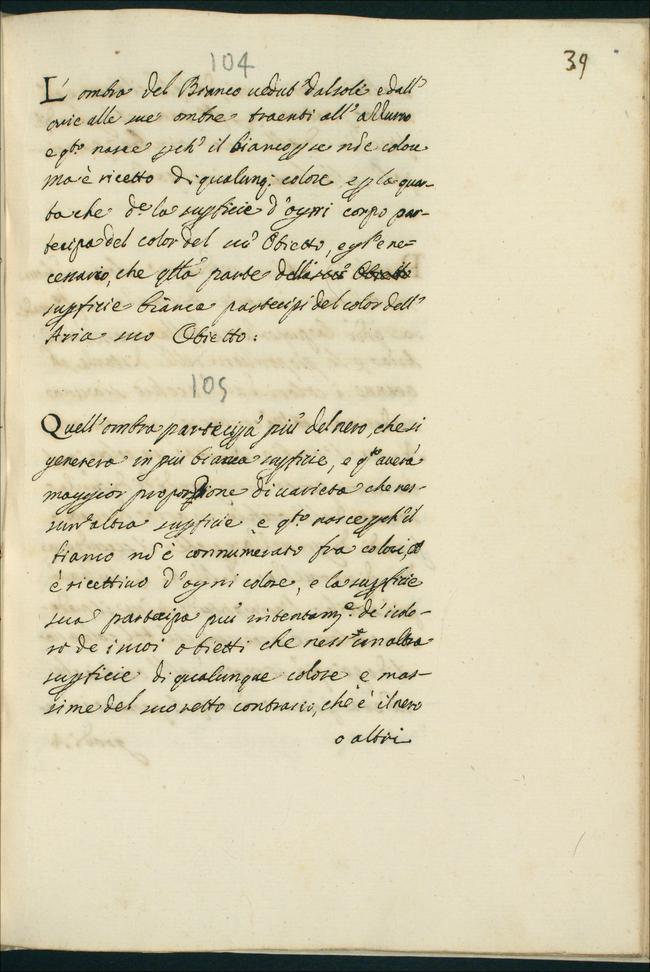 104
39
L' ombra del Bianco ueduto dal sole e dall'
aria alle sue ombre traenti all' azzurro
e q.to nasce p.ch' il bianco p se nō è colore
ma è ricetto di qualunq: colore e p la quar-
ta che de la supficie d'ogni corpo par-
tecipa del color del su' Obietto, e gl' è ne-
cessario, che q.lla parte della
supficie bianca partecipi del color dell'
Aria suo Obietto:
105
Quell' ombra parteciperà più del nero, che si
genererà in più bianca supficie, e q.to auerà
maggior proporzione di uarietà che nes-
sun' altra supficie e q.to nasce p.ch' il
bianco nō è connumerato fra colori, et
è ricettiuo d'ogni colore, e la supficie
sua partecipa più intentam.e de' i colo-
ri de i suoi obietti che nessun' altra
supficie di qualunque colore e mas-
sime del suo retto contrario, che è il nero
o altri